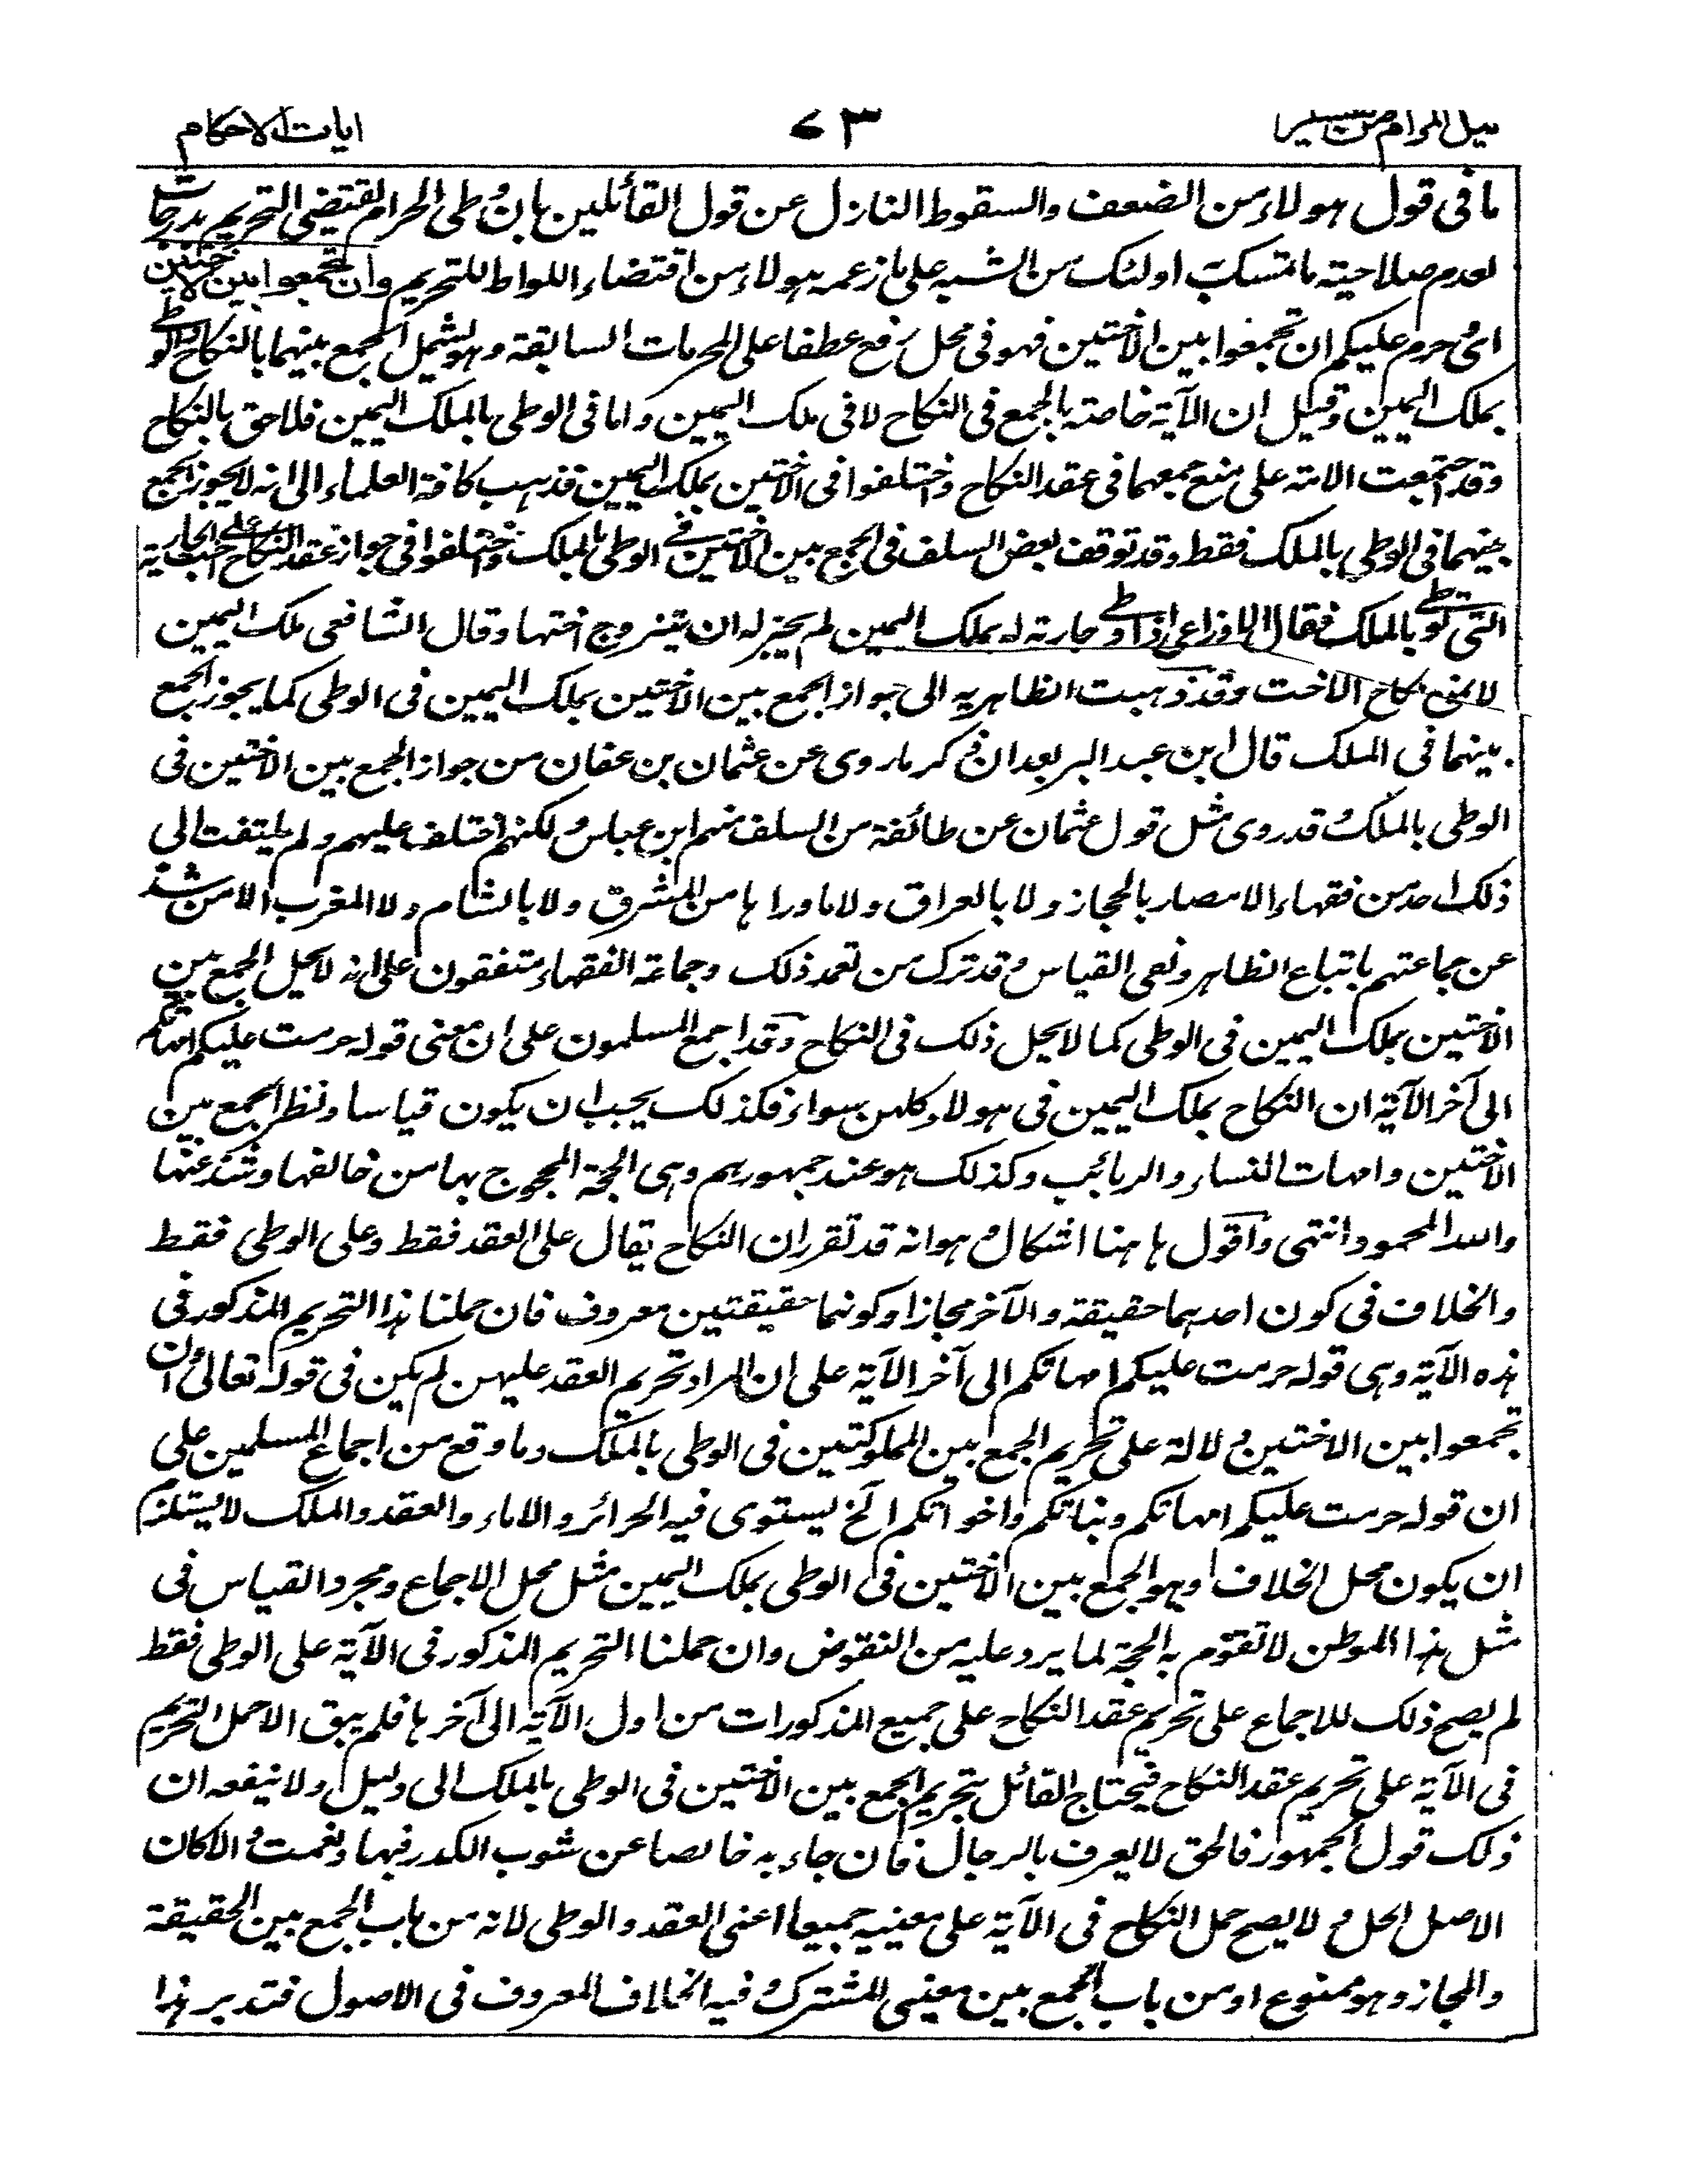 نيل المرام من تفسير ٧٣ ايات الاحكام
ما فى قول هولاء من الضعف والسقوط النازل عن قول القائلين بان وطى الحرام يقتضى التحريم بدرجات
لعدم صلاحية ما تمسك به اولئك من الشبه على ما زعمه هولاء من اقتضاء اللواط للتحريم وان تجمعوا بين الاختين
اى حرم عليكم ان تجمعوا بين الاختين فهو فى محل رفع عطفا على المحرمات السابقة وهو يشمل الجمع بينهما بالنكاح والوطى
بملك اليمين وقيل ان الآية خاصة بالجمع فى النكاح لا فى ملك اليمين واما فى الوطى بالملك اليمين فلاحق بالنكاح
وقد اجتمعت الامة على منع جمعهما فى عقد النكاح واختلفوا فى الاختين بملك اليمين فذهب كافة العلماء الى انه لا يجوز الجمع
بينهما فى الوطى بالملك فقط وقد توقف بعض السلف فى الجمع بين الاختين فى الوطى بالملك واختلفوا فى جواز عقد النكاح على اخت الجارية
التى توطى بالملك فقال الاوزاعى اذا وطى جارية له بملك اليمين لم يجز له ان يتزوج اختها وقال الشافعى ملك اليمين
لا يمنع نكاح الاخت وقد ذهبت الظاهرية الى جواز الجمع بين الاختين بملك اليمين فى الوطى كما يجوز الجمع
بينهما فى الملك قال ابن عبد البر بعد ان ذكر ما روى عن عثمان بن عفان من جواز الجمع بين الاختين فى
الوطى بالملك قد روى مثل قول عثمان عن طائفة من السلف منهم ابن عباس ولكنهم اختلف عليهم ولم يلتفت الى
ذلك احد من فقهاء الامصار بالحجاز ولا بالعراق ولا ما وراءها من المشرق ولا بالشام ولا المغرب الا من شذ
عن جماعتهم باتباع الظاهر ونفى القياس وقد ترك من تعمد ذلك وجماعة الفقهاء متفقون على انه لا يحل الجمع بين
الاختين بملك اليمين فى الوطى كما لا يحل ذلك فى النكاح وقد اجمع المسلمون على ان معنى قوله حرمت عليكم امهاتكم
الى آخر الآية ان النكاح بملك اليمين فى هولاء كلهن سواء فكذلك يجب ان يكون قياسا ونظرا الجمع بين
الاختين وامهات النساء والربائب وكذلك هو عند جمهورهم وهى الحجة المحجوج بها من خالفها وشذ عنها
والله المحمود انتهى واقول ها هنا اشكال وهو انه قد تقرر ان النكاح يقال على العقد فقط وعلى الوطى فقط
والخلاف فى كون احدهما حقيقة والآخر مجازا وكونهما حقيقتين معروف فان حملنا هذا التحريم المذكور فى
هذه الآية وهى قوله حرمت عليكم امهاتكم الى آخر الآية على ان المراد تحريم العقد عليهن لم يكن فى قوله تعالى وان
تجمعوا بين الاختين دلالة على تحريم الجمع بين المملوكتين فى الوطى بالملك وما وقع من اجماع المسلمين على
ان قوله حرمت عليكم امهاتكم وبناتكم واخواتكم الخ يستوى فيه الحرائر والاماء والعقد والملك لا يستلزم
ان يكون محل الخلاف وهو الجمع بين الاختين فى الوطى بملك اليمين مثل محل الاجماع ومجرد القياس فى
مثل هذا الموطن لا تقوم به الحجة لما يرد عليه من النقوض وان حملنا التحريم المذكور فى الآية على الوطى فقط
لم يصح ذلك للاجماع على تحريم عقد النكاح على جميع المذكورات من اول الآية الى آخرها فلم يبق الا حمل التحريم
فى الآية على تحريم عقد النكاح فيحتاج القائل بتحريم الجمع بين الاختين فى الوطى بالملك الى دليل ولا ينفعه ان
ذلك قول الجمهور فالحق لا يعرف بالرجال فان جاء به خالصا عن شوب الكدر فبها ونعمت والا كان
الاصل الحل ولا يصح حمل النكاح فى الآية على معنييه جميعا اعنى العقد والوطى لانه من باب الجمع بين الحقيقة
والمجاز وهو ممنوع او من باب الجمع بين معنيى المشترك وفيه الخلاف المعروف فى الاصول فتدبر هذا